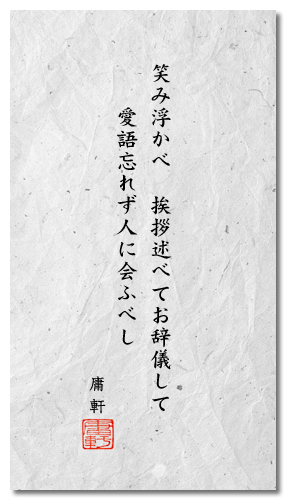 笑み浮かべ　挨拶述べてお辞儀して
愛語忘れず人に会ふべし
庸軒
庸軒